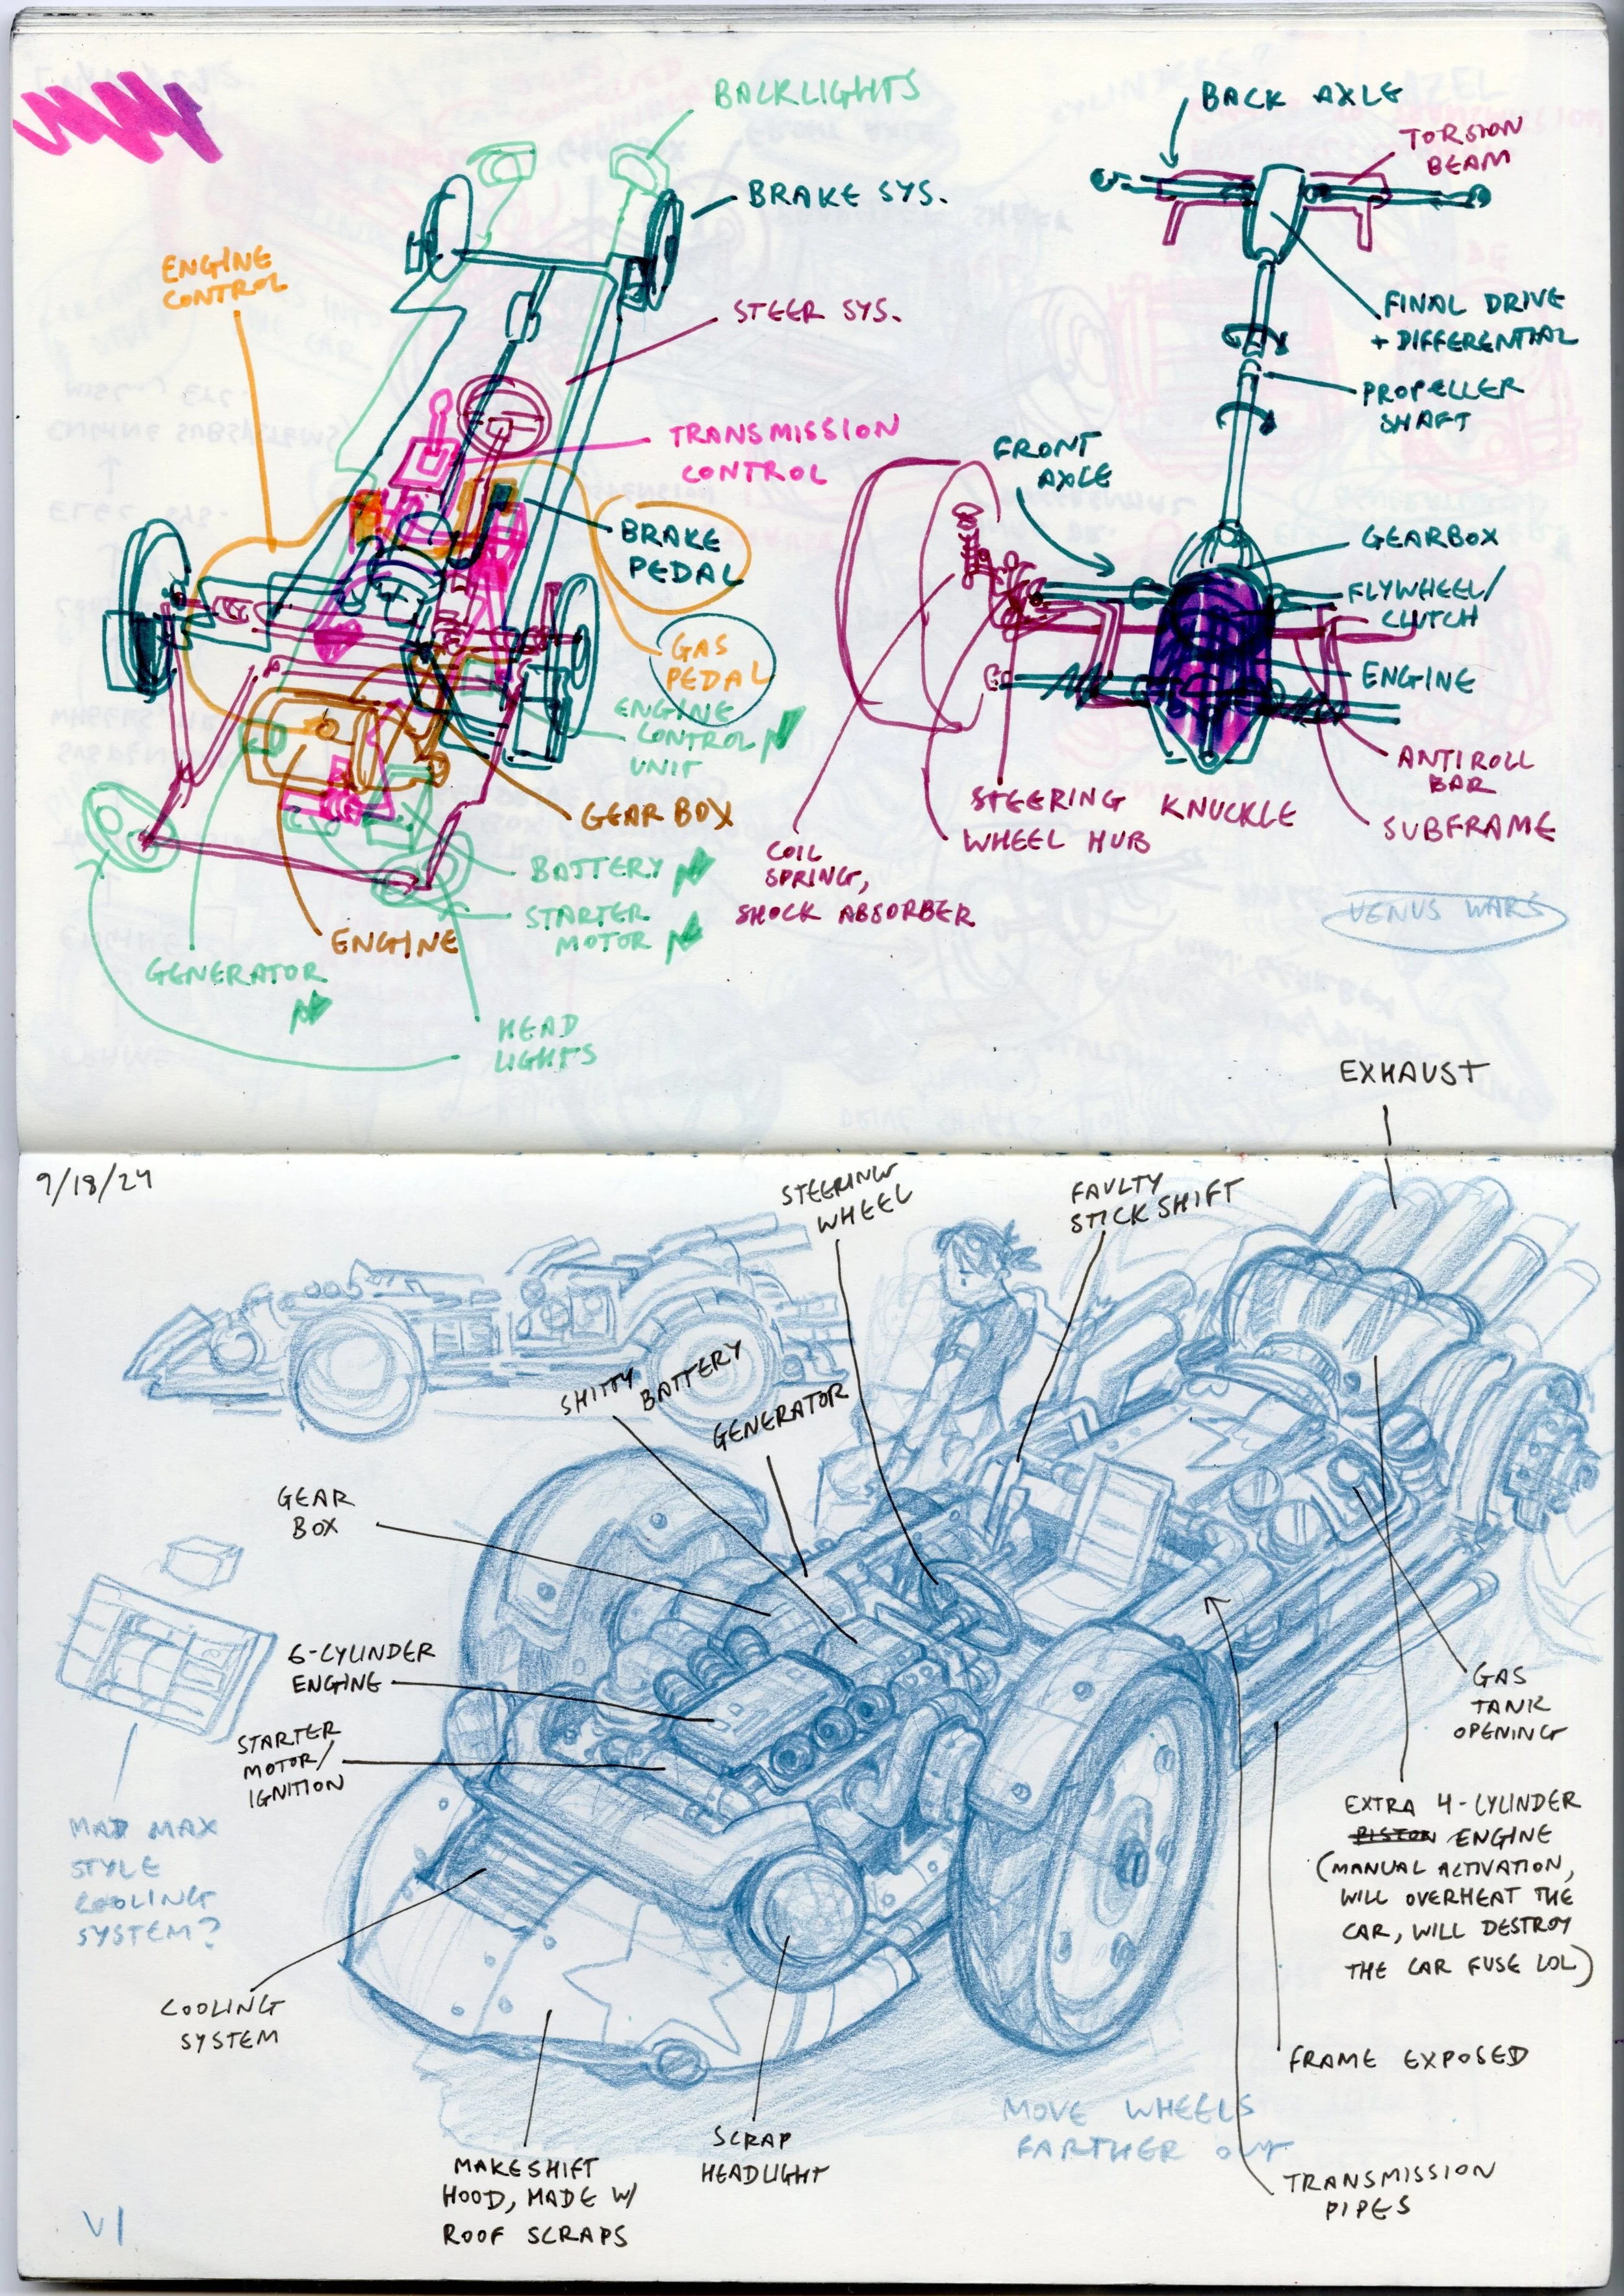 BACKLIGHTS
BRAKE SYS.
ENGINE
CONTROL
STEER SYS.
TRANSMISSION
CONTROL
BRAKE
PEDAL
GAS
PEDAL
ENGINE
CONTROL
UNIT
GEAR BOX
BATTERY
STARTER
MOTOR
ENGINE
GENERATOR
HEAD
LIGHTS
BACK AXLE
TORSION
BEAM
FINAL DRIVE
+ DIFFERENTIAL
PROPELLER
SHAFT
FRONT
AXLE
GEARBOX
FLYWHEEL/
CLUTCH
ENGINE
ANTIROLL
BAR
SUBFRAME
STEERING KNUCKLE
WHEEL HUB
COIL
SPRING,
SHOCK ABSORBER
VENUS WARS
EXHAUST
9/18/24
STEERING
WHEEL
FAULTY
STICK SHIFT
SHITTY BATTERY
GENERATOR
GEAR
BOX
6-CYLINDER
ENGINE
STARTER
MOTOR/
IGNITION
MAD MAX
STYLE
COOLING
SYSTEM?
COOLING
SYSTEM
GAS
TANK
OPENING
EXTRA 4-CYLINDER
PISTON ENGINE
(MANUAL ACTIVATION,
WILL OVERHEAT THE
CAR, WILL DESTROY
THE CAR FUSE LOL)
FRAME EXPOSED
MOVE WHEELS
FARTHER OUT
TRANSMISSION
PIPES
SCRAP
HEADLIGHT
MAKESHIFT
HOOD, MADE W/
ROOF SCRAPS
V1